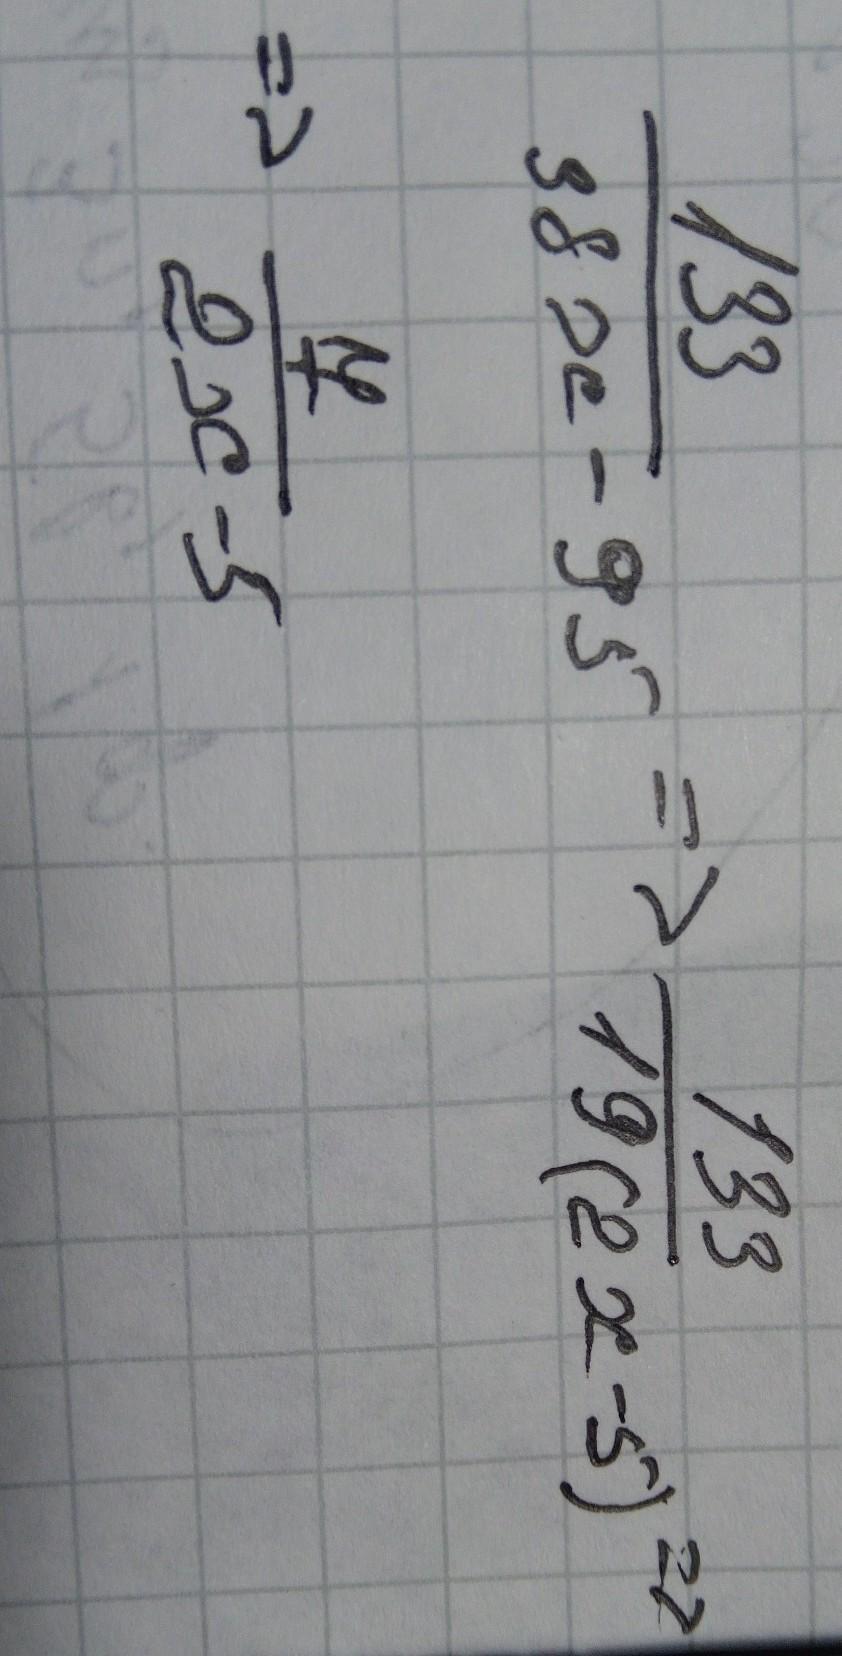 133/(38x - 95) => 133/(19(2x - 5)) =>
=> 7/(2x - 5)